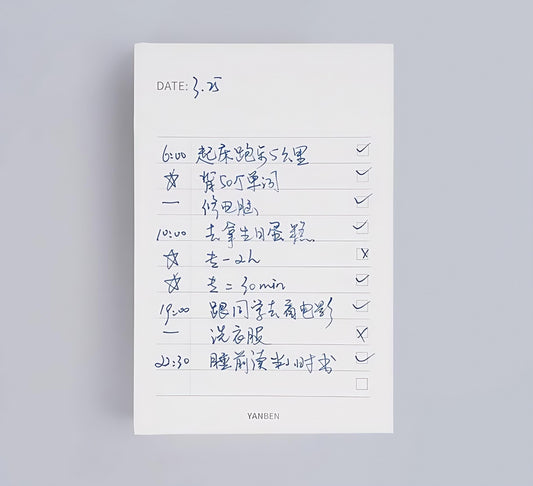 DATE: 3.25
6:00 起床跑步5公里 ✓
☆ 背50个单词 ✓
— 修电脑 ✓
10:00 去拿生日蛋糕 ✓
☆ 专一 2h ☒
☆ 专二 30min ✓
19:00 跟同学去看电影 ✓
— 洗衣服 ☒
22:30 睡前读半小时书 ✓
YANBEN